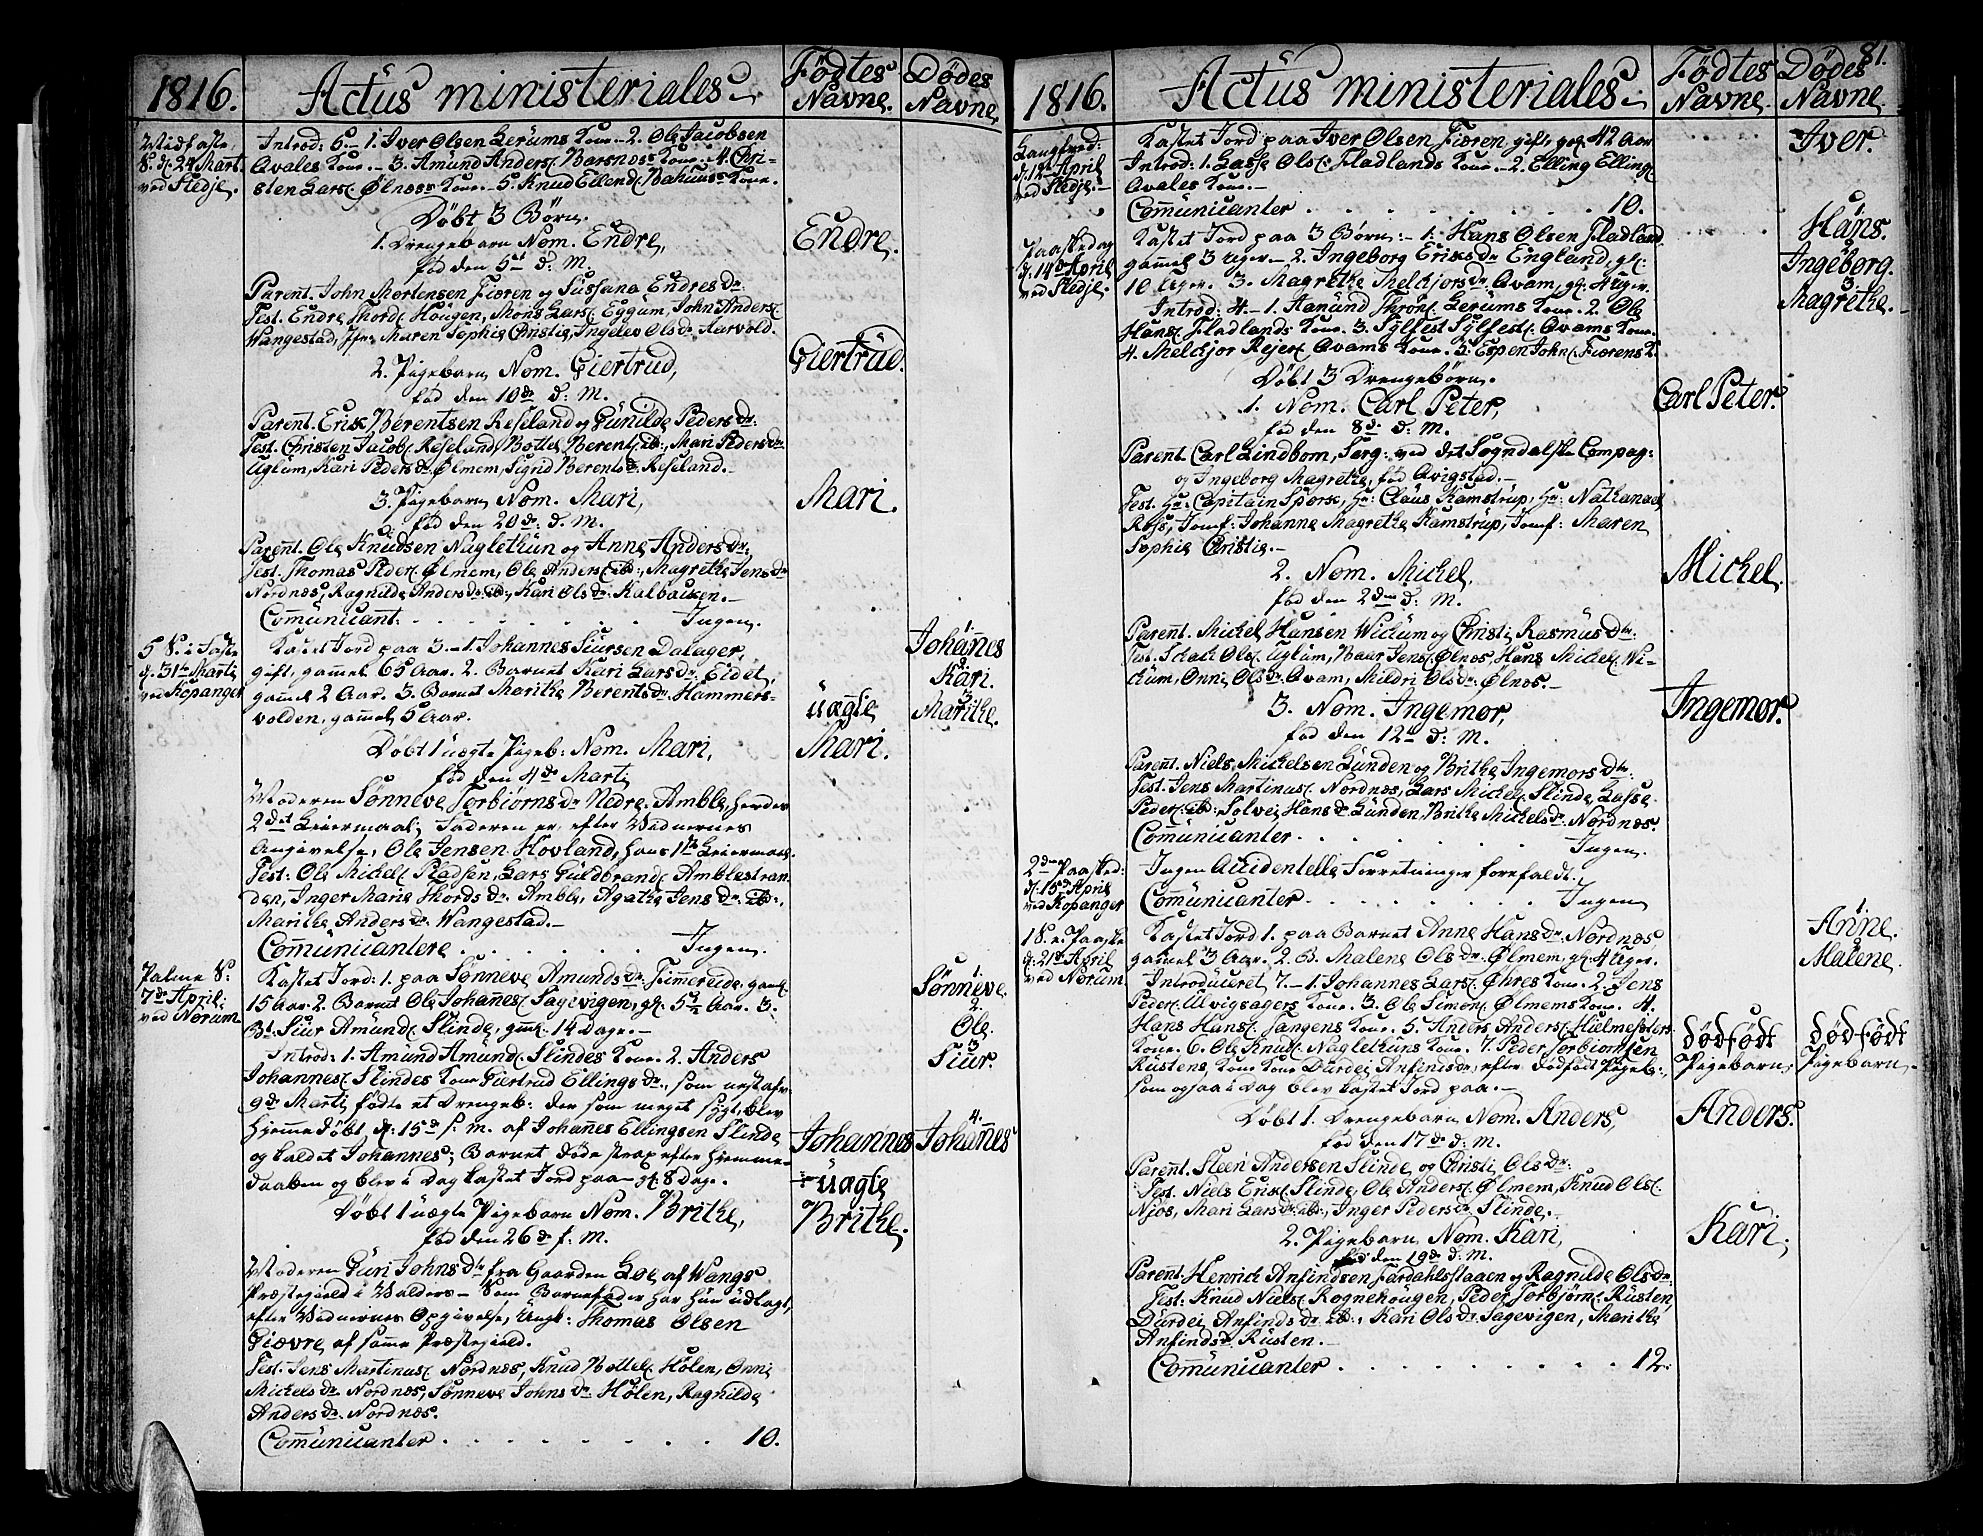 1816. Actus ministeriales Fødtes Navne. Dødes Navne.
Midfaste S. d. 24 Mart. ved Stedje.
Introd: 5. - 1. Iver Olsen Lerums Kone - 2. Ole Jacobsen
Qvales Kone. - 3. Amund Anders. Barsnæs Kone. - 4. Chri-
sten Lars. Ølnæs Kone. - 5. Knud Ellend. Kone.
Døbt 3 Børn.
1. Drengebarn Nom. Endre, Endre.
fød den 5te d: M.
Parent. John Mortensen Fiæren og Sussana Endresdr:
Test. Endre Thord. Hougen, Mons Lars. Eggum, John Anders.
Wangestad, Jfr. Maren Sophia Christie, Ingelev Olsdr. Aarvold.
2. Pigebarn Nom. Giertrud, Giertrud.
fød den 10de d: M.
Parent. Erik Berentsen Reseland og Gunilde Pedersdr:
Test. Christen Jacob. Reseland, Bottel Berents. ib:, Mari Pedersdr.
Uglum, Kari Pedersdr. Ølmem, Sigrid Berentsdr. Reseland. -
3. Pigebarn Nom. Mari, Mari.
fød den 20de d. M.
Parent. Ole Knudsen Nagletkun og Anne Andersdr.
Test. Thomas Peders. Ølmem, Ole Anders. ib:, Magrethe Jensdr.
Nordnæs, Ragnilde Andersdr. ib:, Kari Olsdr. Kalbakken. -
Communicant. . . . . . Ingen.
5 S. i Faste d. 31te Marti ved Kopanger
Kastet Jord paa 3 - 1. Johannes Siursen Dalager, 1. Johannes
gift, gammel 65 Aar. 2. Barnet Kari Larsdr. Eidet, 2. Kari.
gammel 2 Aar. 3. Barnet Marithe Berentsdr. Hammers- 3. Marithe.
volden, gammel 5 Aar. uægte
Døbt 1 uægte Pigeb: Nom. Mari, Mari.
fød den 4de Marti
Moderen Sønneve Torbiørnsdr. Nedre Amble, hendes
2det Leiermaal; Faderen er efter Madmernes
Angivelse, Ole Jensen Hovland, hans 1te Leiermaal.
Test: Ole Michel. Pladsen, Lars Guldbrand. Amblestran-
den, Inger Maria Thordsdr. Amble, Agathe Jensdr. ib:,
Marithe Andersdr. Wangestad. -
Communicantere . . . . . Ingen.
Palme S: 7de April: ved Norum
Kastet Jord: 1. paa Sønneve Amundsdr. Timmereide, gaml. 1. Sønneve.
15 Aar. 2. Barnet Ole Johannes. Sagevigen, gl: 5½ Aar. 3. 2. Ole.
Bt. Siur Amund. Slinde, gml. 14 Dage. - 3. Siur.
Introd: 1. Amund Amund. Slindes Kone. 2. Anders
Johannes. Slindes Kone Giertrud Ellingsdr., som
9de Marti fødte et Drengeb: der som meget sygt, blev
hjemmedøbt d: 15de s. m. af Johannes Ellingsen Slinde,
og kaldet Johannes; Barnet døde strax efter Hjemme- Johannes 4. Johannes
daaben og blev i Dag kastet Jord paa - gl. 8 Dage.
uægte
Døbt 1 uægte Pigebarn Nom. Brithe, Brithe.
fød den 26de f. M.
Moderen Guri Johnsdr. fra Gaarden Loe af Wangs
Præstegield i Walders - Som Barnefader har hun udlagt,
efter Madmernes Opgivelse, Ungk: Thomas Olsen
Giævre af samme Præstegield.
Test. Jens Martinus. Nordnæs, Knud Bottel. Hølen, Onni
Michelsdr. Nordnæs, Sønneve Johnsdr. Hølen, Ragnilde
Andersdr. Nordnæs.
Communicanter . . . . . . . . 10.
81.
1816. Actus ministeriales Fødtes Navne. Dødes Navne.
Langfred: d. 12te April ved Stedje. -
Kastet Jord paa Iver Olsen Fiæren, gift, gl. 42 Aar Iver.
Introd: 1. Lasse Ols. Fladlands Kone. - 2. Elling Elling.
Qvales Kone. -
Communicanter . . . . . . . 10.
Paaskedag d. 14de April ved Stedje.
Kastet Jord paa 3 Børn: - 1. Hans Olsen Fladland 1. Hans.
gammel 3 Uger. - 2. Ingeborg Eriksdr. England, gl. 2. Ingeborg.
10 Uger. 3. Magrethe Melchiorsdr. Qvam, gl. 4 Uger. 3. Magrethe.
Introd: 4. - 1. Aamund Thron. Lerums Kone. 2. Ole
Hans. Fladlands Kone. 3. Sylfest Sylfest. Qvams Kone.
4. Melchior Rejer. Qvams Kone. 5. Espen John. Fiærens K.
Døbt 3 Drengebørn.
1. Nom. Carl Peter, Carl Peter.
fød den 8de d: M.
Parent. Carl Lindbom, Serg: ved det Sogndalske Compag:
og Ingeborg Magrethe, fød Qvigstad. -
Test. Hr: Capitain Spork, Hr: Claus Kamstrup, Hr: Nathanael
Ross, Jomf: Johanne Magrethe Kamstrup, Jomf: Maren
Sophia Christie. -
2. Nom. Michel, Michel.
fød den 2den d: M.
Parent. Michel Hansen Wickum og Christi Rasmusdr:
Test. Schak Ols. Uglum, Baar Jens. Ølnæs, Hans Michel. Wi-
ckum, Onna Olsdr. Qvam, Mildri Olsdr. Ølnæs. -
3. Nom. Ingemor, Ingemor.
fød den 12te d: M.
Parent. Niels Michelsen Lunden og Brithe Ingemorsdtr:
Test. Jens Martinus. Nordnæs, Lars Michel. Slinde, Lasse
Peder. ib: Solvei Hansdr. Lunden, Brithe Michelsdr. Nordnæs.
Communicanter . . . . . . Ingen.
2den Paasked: d. 15de April ved Kopanger
Ingen Accidentelle Forretninger forefaldt.
Communicanter . . . . . . . . Ingen
1 S. e. Paaske d: 21de April ved Norum
Kastet Jord 1. paa Barnet Anne Hansdr. Nordnæs, 1. Anne.
gammel 3 Aar. 2. B. Malene Olsdr. Ølmem, gl. 4 Uger. Malene.
Introduceret 7. - 1. Johannes Lars. Øhres Kone. 2. Jens
Peder. Ulvigsagers Kone. 3. Ole Simon. Ølmems Kone. 4.
Hans Hans. Fangens Kone. 5. Anders Anders. Hielmesters
Kone. 6. Ole Knud. Nagletkuns Kone. 7. Peder Torbiornsen dødfødt dødfødt
Rustens Kone Kone Durdei Anfinsdr., efter dødfødt Pigeb:, Pigebarn, Pigebarn.
som ogsaa i Dag blev kastet Jord paa. -
Døbt 1. Drengebarn Nom. Anders, Anders.
fød den 17de d: m.
Parent. Steen Andersen Slinde og Christi Olsdr:
Test. Niels Erik. Slinde, Ole Anders. Ølmem, Knud Ols.
Njøs, Mari Larsdr. ib:, Inger Pedersdr. Slinde. -
2. Pigebarn Nom. Kari, Kari.
fød den 19de d: M.
Parent. Henrich Anfindsen Fardahlsstaaen og Ragnilde Olsdr.
Test: Knud Niels. Rognehougen, Peder Torbjørn. Rusten,
Durdei Anfindsdr. ib:, Kari Olsdr. Sagevigen, Marithe
Anfindsdr. Rusten. -
Communicanter . . . . . . . . . 12.